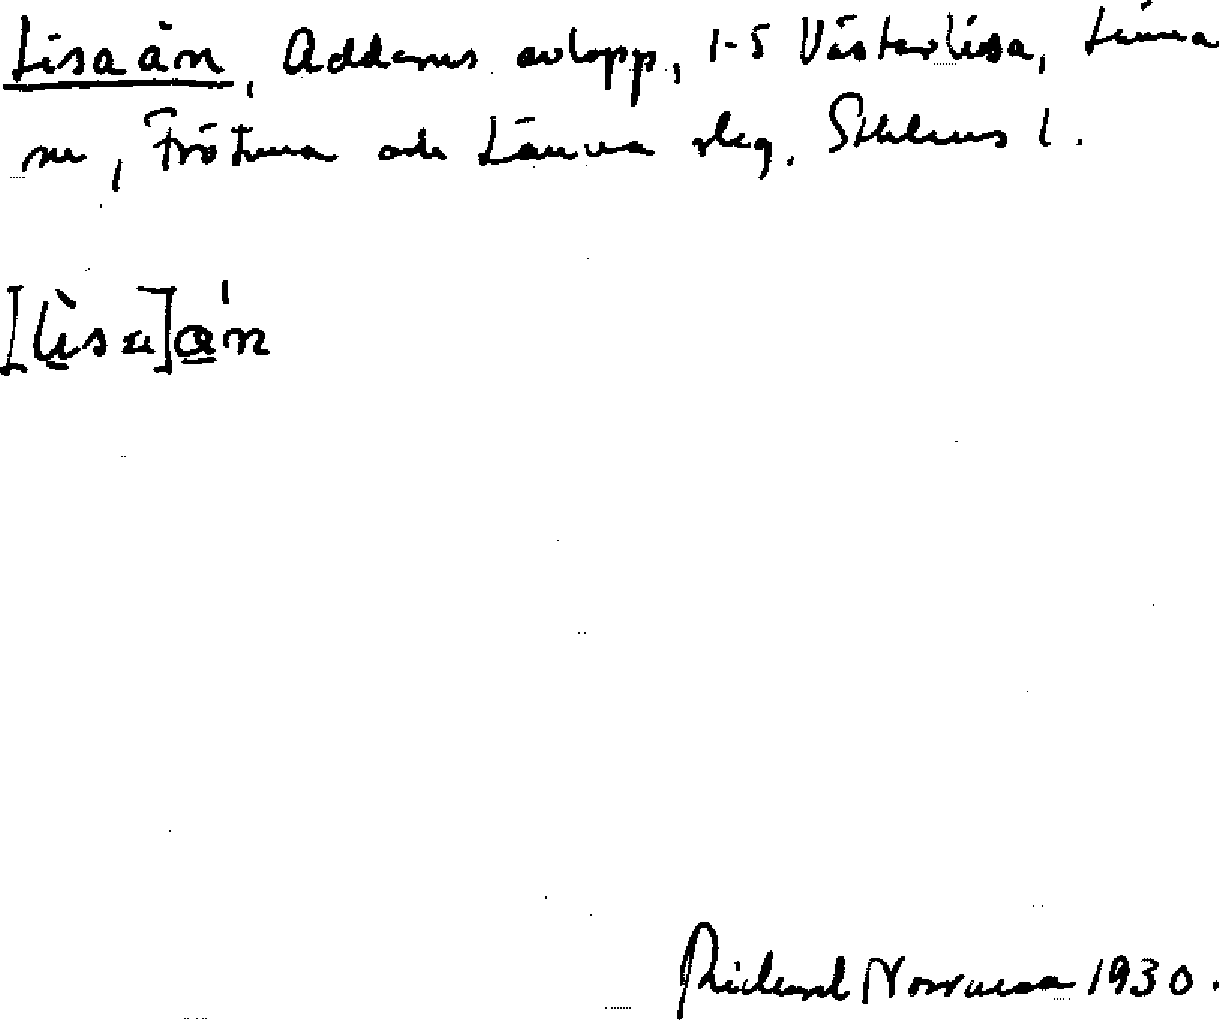 Lisaån, Addarns avlopp, 1-5 Västerlisa, Länna
sn, Frötuna och Länna skg, Sthlms l.
[lìsa]å'n
Rickard Norrman 1930.